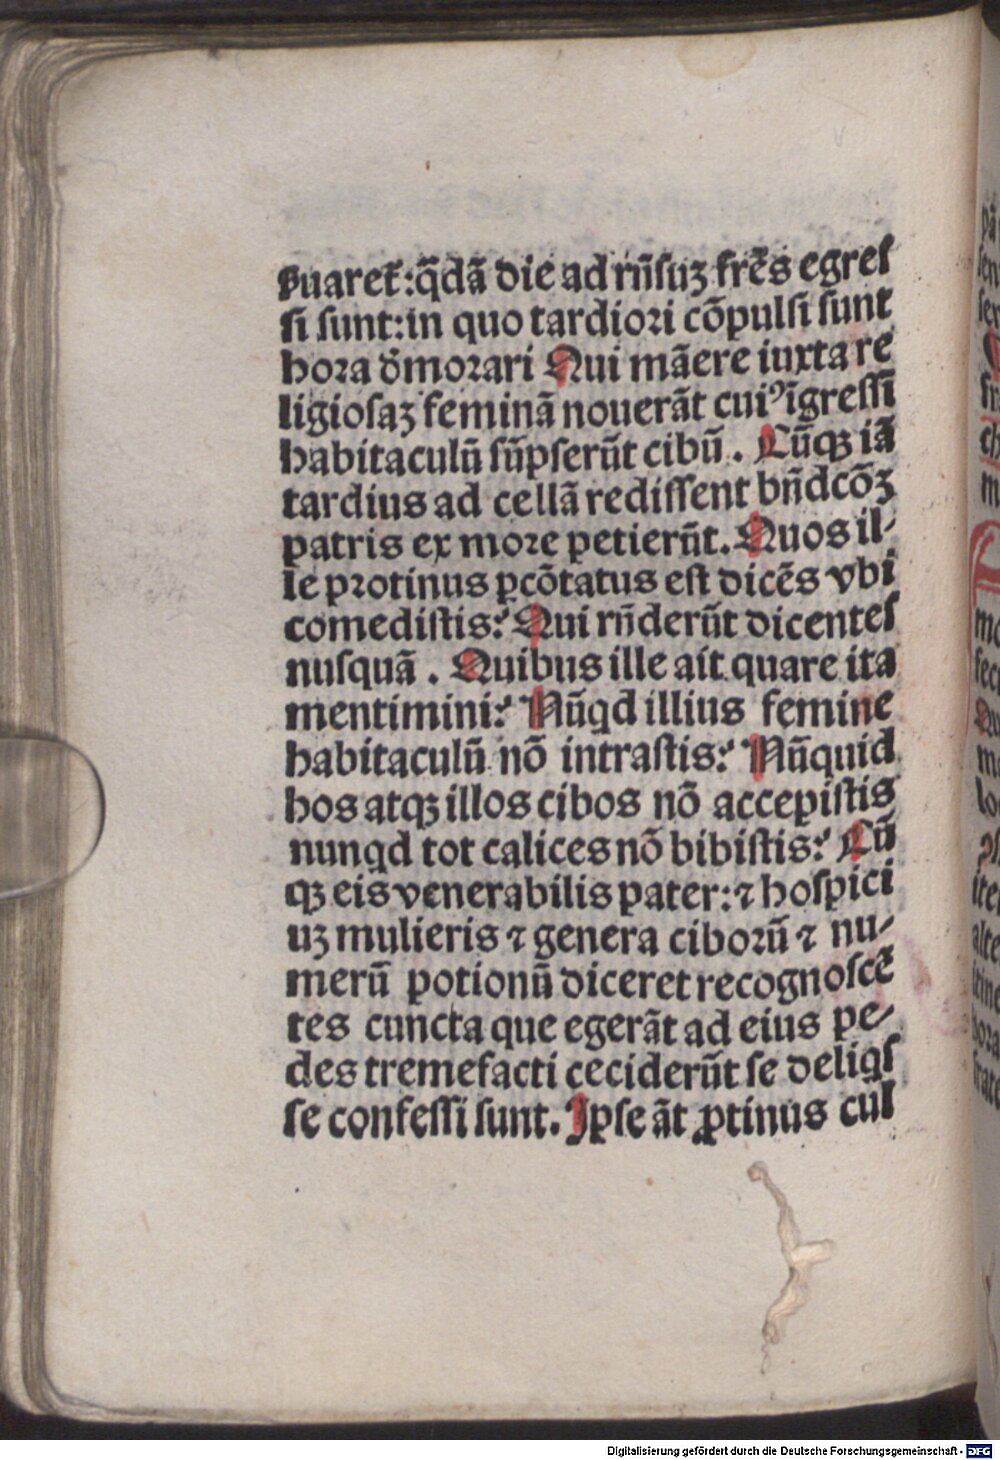 ẜuaret᷒:q̄dā die ad rn̄ſuꝫ fr̄es egreſ
ſi ſunt:in quo tardiori cōpulſi ſunt
hora d̄morari Qui māere iuxta re
ligioſaꝫ feminā nouerāt cuiꝰ īgreſſi
habitaculū ſūpſerūt cibū. Cūqꝫ iā
tardius ad cellā rediſſent bn̄dcōꝫ
patris ex more petierūt. Quos il⸗
le protinus ꝑcōtatus eſt dicēs vbi
comediſtis? Qui rn̄derūt dicenteſ
nuſquā. Quibus ille ait quare ita
mentimini? Nūqd illius femine
habitaculū nō intraſtis? Nūquid
hos atqꝫ illos cibos nō accepiſtis
nunqd tot calices nō bibiſtis? Cū
qꝫ eis venerabilis pater:⁊ hoſpici
uꝫ mulieris ⁊ genera ciborū ⁊ nu⸗
merū potionū diceret recognoſcē
tes cuncta que egerāt ad eius pe⸗
des tremefacti ceciderūt ſe deliqſ
ſe confeſſi ſunt. Ipſe āt ꝓtinus cul
Digitalisierung gefördert durch die Deutsche Forschungsgemeinschaft - DFG